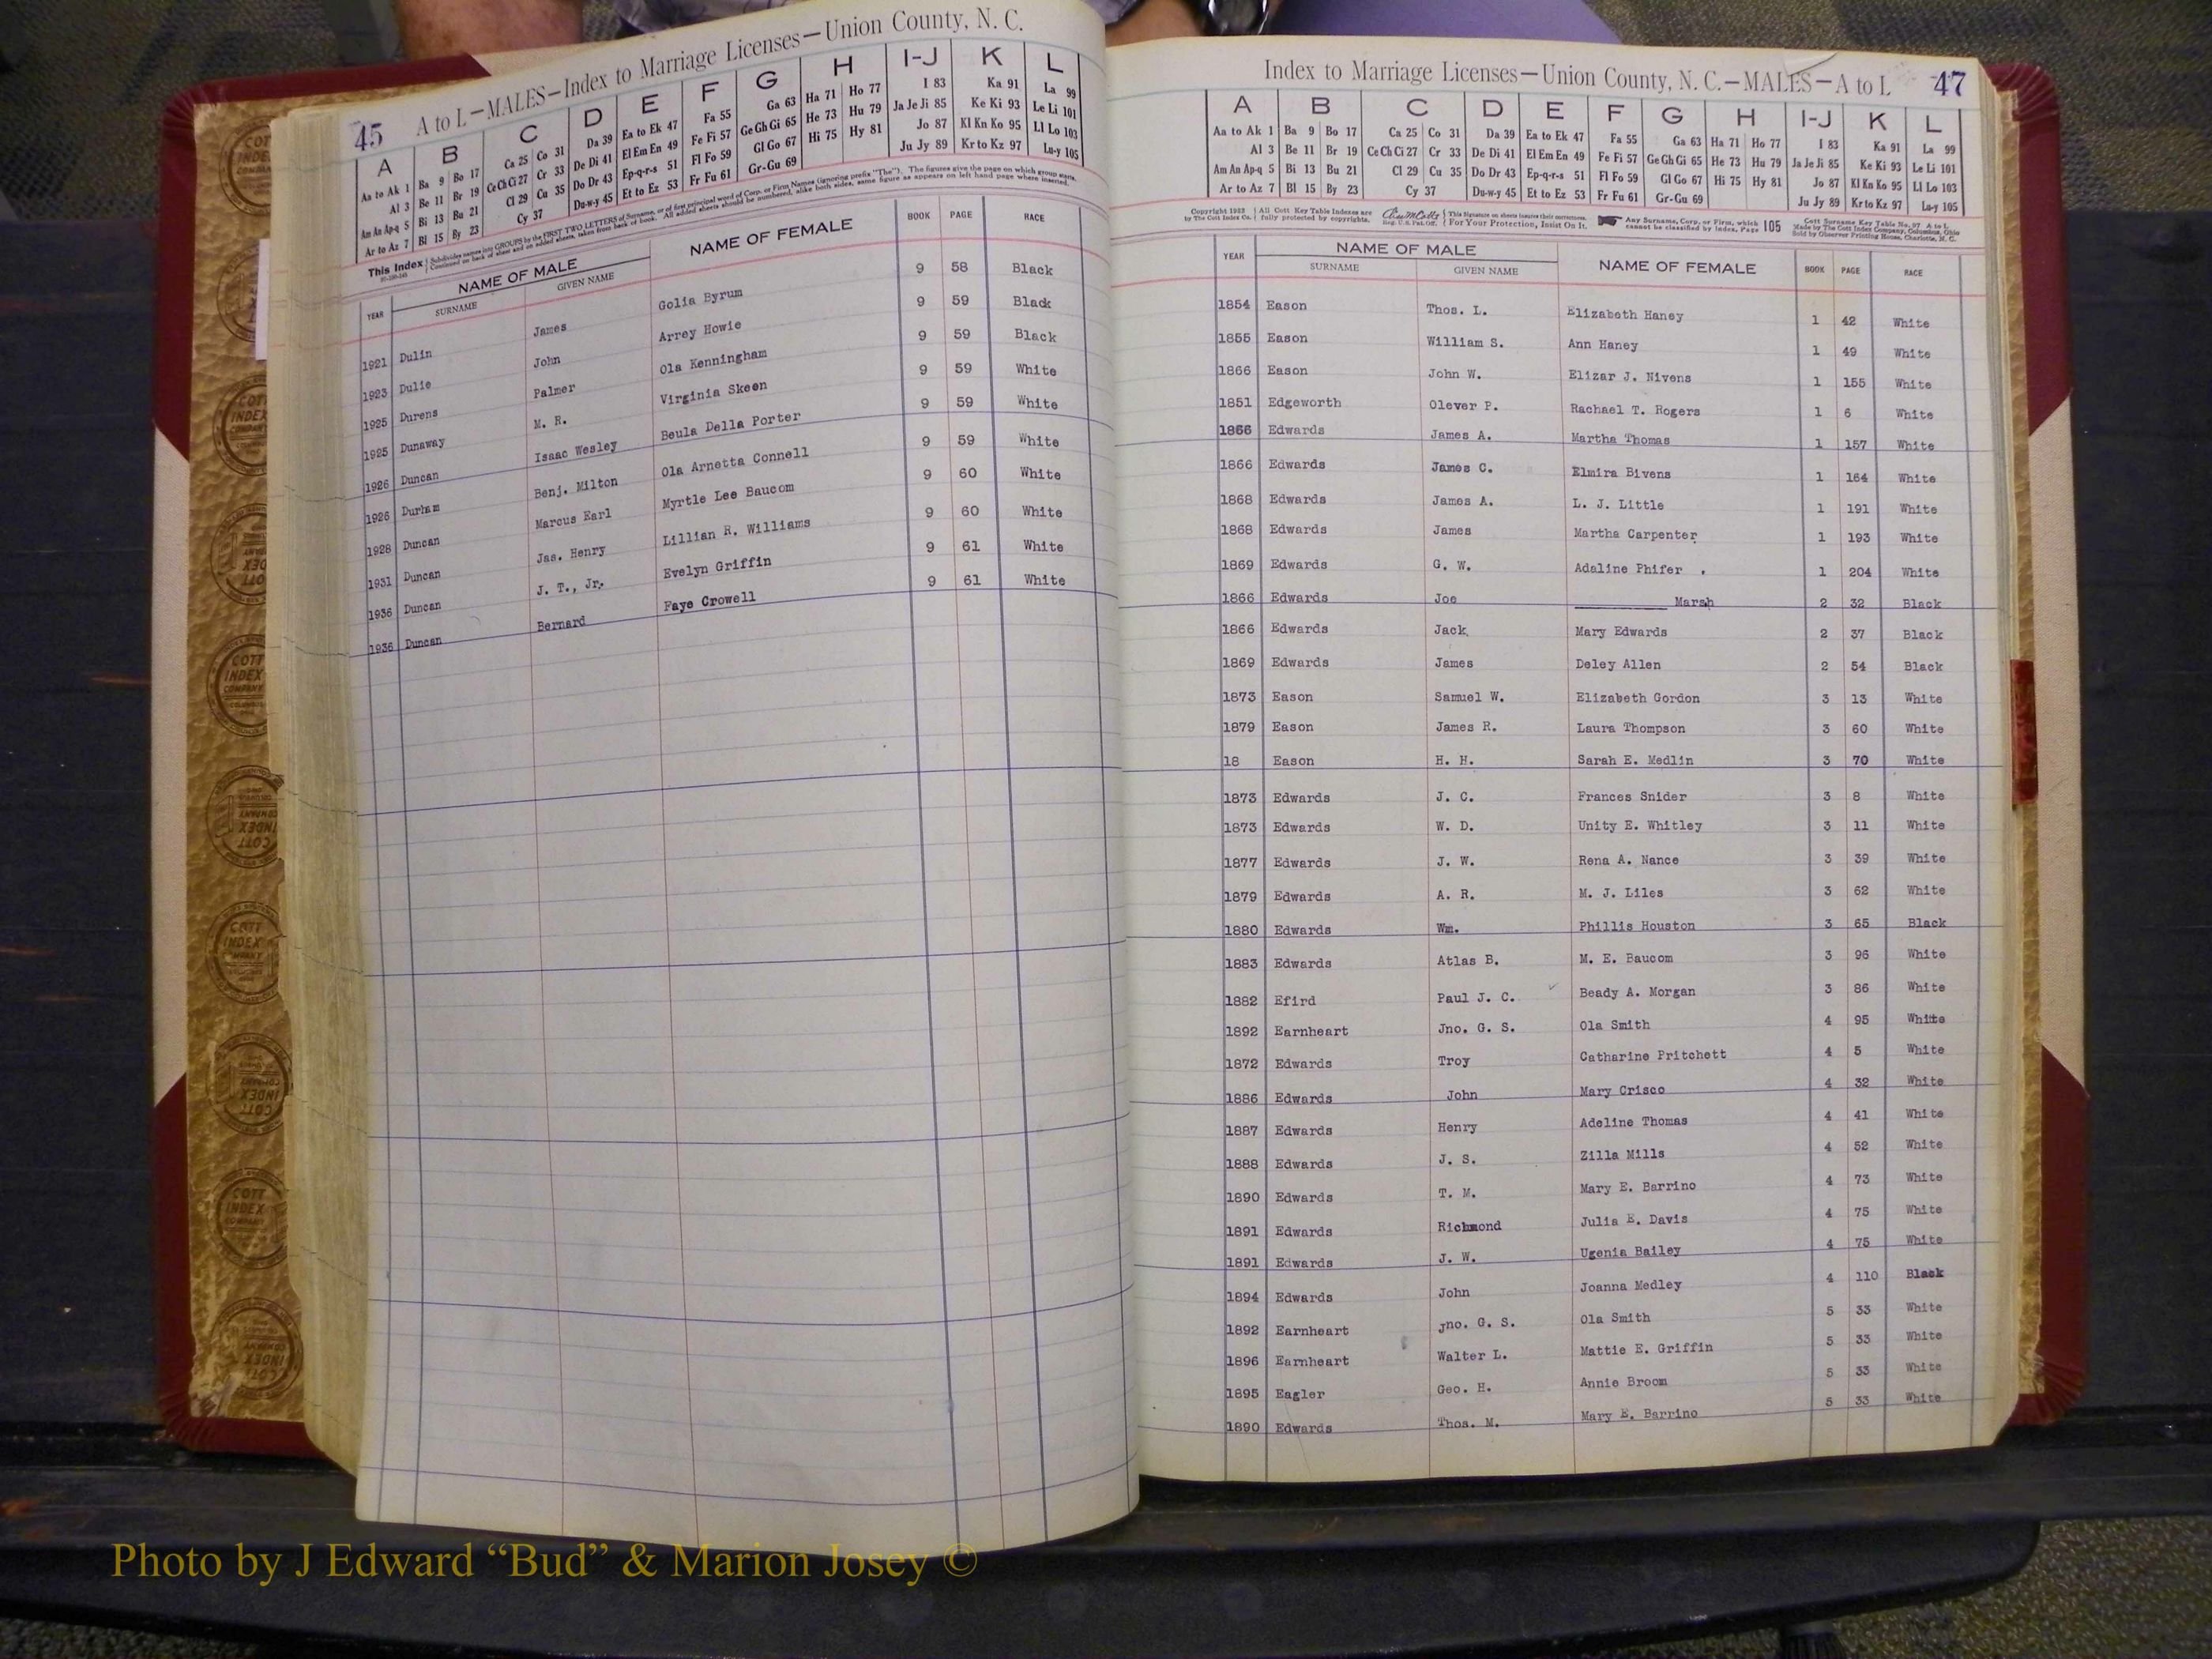 45 A to L—MALES—Index to Marriage Licenses—Union County, N. C.
A B C D E F G H I-J K L
Aa to Ak 1 Ba 9 Bo 17 Ca 25 Co 31 Da 39 Ea to Ek 47 Fa 55 Ga 63 Ha 71 Ho 77 I 83 Ka 91 La 99
Al 3 Be 11 Br 19 Ce Ch Ci 27 Cr 33 De Di 41 El Em En 49 Fe Fi 57 Ge Gh Gi 65 He 73 Hu 79 Ja Je Ji 85 Ke Ki 93 Le Li 101
Am An Ap-q 5 Bi 13 Bu 21 Cl 29 Cu 35 Do Dr 43 Ep-q-r-s 51 Fl Fo 59 Gl Go 67 Hi 75 Hy 81 Jo 87 Kl Kn Ko 95 Ll Lo 103
Ar to Az 7 Bl 15 By 23 Cy 37 Du-w-y 45 Et to Ez 53 Fr Fu 61 Gr-Gu 69 Ju Jy 89 Kr to Kz 97 Lu-y 105
This Index Subdivides names into GROUPS by the FIRST TWO LETTERS of Surname, or of first principal word of Corp. or Firm Names (ignoring prefix "The"). The figures give the page on which group starts.
Continued on back of sheet and on added sheets, taken from back of book. All added sheets should be numbered, alike both sides, same figure as appears on left hand page where inserted.
YEAR NAME OF MALE NAME OF FEMALE BOOK PAGE RACE
SURNAME GIVEN NAME
1921 Dulin James Golia Byrum 9 58 Black
1923 Dulie John Arrey Howie 9 59 Black
1925 Durens Palmer Ola Kenningham 9 59 Black
1925 Dunaway M. R. Virginia Skeen 9 59 White
1926 Duncan Isaac Wesley Beula Della Porter 9 59 White
1926 Durham Benj. Milton Ola Arnetta Connell 9 59 White
1928 Duncan Marcus Earl Myrtle Lee Baucom 9 60 White
1931 Duncan Jas. Henry Lillian R. Williams 9 60 White
1936 Duncan J. T., Jr. Evelyn Griffin 9 61 White
1936 Duncan Bernard Faye Crowell 9 61 White
Index to Marriage Licenses—Union County, N. C.—MALES—A to L 47
A B C D E F G H I-J K L
Aa to Ak 1 Ba 9 Bo 17 Ca 25 Co 31 Da 39 Ea to Ek 47 Fa 55 Ga 63 Ha 71 Ho 77 I 83 Ka 91 La 99
Al 3 Be 11 Br 19 Ce Ch Ci 27 Cr 33 De Di 41 El Em En 49 Fe Fi 57 Ge Gh Gi 65 He 73 Hu 79 Ja Je Ji 85 Ke Ki 93 Le Li 101
Am An Ap-q 5 Bi 13 Bu 21 Cl 29 Cu 35 Do Dr 43 Ep-q-r-s 51 Fl Fo 59 Gl Go 67 Hi 75 Hy 81 Jo 87 Kl Kn Ko 95 Ll Lo 103
Ar to Az 7 Bl 15 By 23 Cy 37 Du-w-y 45 Et to Ez 53 Fr Fu 61 Gr-Gu 69 Ju Jy 89 Kr to Kz 97 Lu-y 105
Copyright All Cott Key Table Indexes are This Signature on sheets insures their correctness. Any Surname, Corp. or Firm, which 105 Cott Surname Key Table No. 97 A to L
to The Cott Index Co. fully protected by copyrights. Reg. U. S. Pat. Off. For Your Protection, Insist On It. cannot be classified by index, Page Made by The Cott Index Company, Columbus, Ohio
Sold by Observer Printing House, Charlotte, N. C.
YEAR NAME OF MALE NAME OF FEMALE BOOK PAGE RACE
SURNAME GIVEN NAME
1854 Eason Thos. L. Elizabeth Haney 1 42 White
1855 Eason William S. Ann Haney 1 49 White
1866 Eason John W. Elizar J. Nivens 1 155 White
1851 Edgeworth Olever P. Rachael T. Rogers 1 6 White
1866 Edwards James A. Martha Thomas 1 157 White
1866 Edwards James C. Elmira Bivens 1 164 White
1868 Edwards James A. L. J. Little 1 191 White
1868 Edwards James Martha Carpenter 1 193 White
1869 Edwards G. W. Adaline Phifer . 1 204 White
1866 Edwards Joe ________ Marsh 2 32 Black
1866 Edwards Jack. Mary Edwards 2 37 Black
1869 Edwards James Deley Allen 2 54 Black
1873 Eason Samuel W. Elizabeth Gordon 3 13 White
1879 Eason James R. Laura Thompson 3 60 White
18 Eason H. H. Sarah E. Medlin 3 70 White
1873 Edwards J. C. Frances Snider 3 8 White
1873 Edwards W. D. Unity E. Whitley 3 11 White
1877 Edwards J. W. Rena A. Nance 3 39 White
1879 Edwards A. R. M. J. Liles 3 62 White
1880 Edwards Wm. Phillis Houston 3 65 Black
1883 Edwards Atlas B. M. E. Baucom 3 96 White
1882 Efird Paul J. C. ✓ Beady A. Morgan 3 86 White
1892 Earnheart Jno. G. S. Ola Smith 4 95 White
1872 Edwards Troy Catharine Pritchett 4 5 White
1886 Edwards John Mary Crisco 4 32 White
1887 Edwards Henry Adeline Thomas 4 41 White
1888 Edwards J. S. Zilla Mills 4 52 White
1890 Edwards T. M. Mary E. Barrino 4 73 White
1891 Edwards Richmond Julia E. Davis 4 75 White
1891 Edwards J. W. Ugenia Bailey 4 75 White
1894 Edwards John Joanna Medley 4 110 Black
1892 Earnheart Jno. G. S. Ola Smith 5 33 White
1896 Earnheart Walter L. Mattie E. Griffin 5 33 White
1895 Eagler Geo. H. Annie Broom 5 33 White
1890 Edwards Thos. M. Mary E. Barrino 5 33 White
Photo by J Edward “Bud” & Marion Josey ©